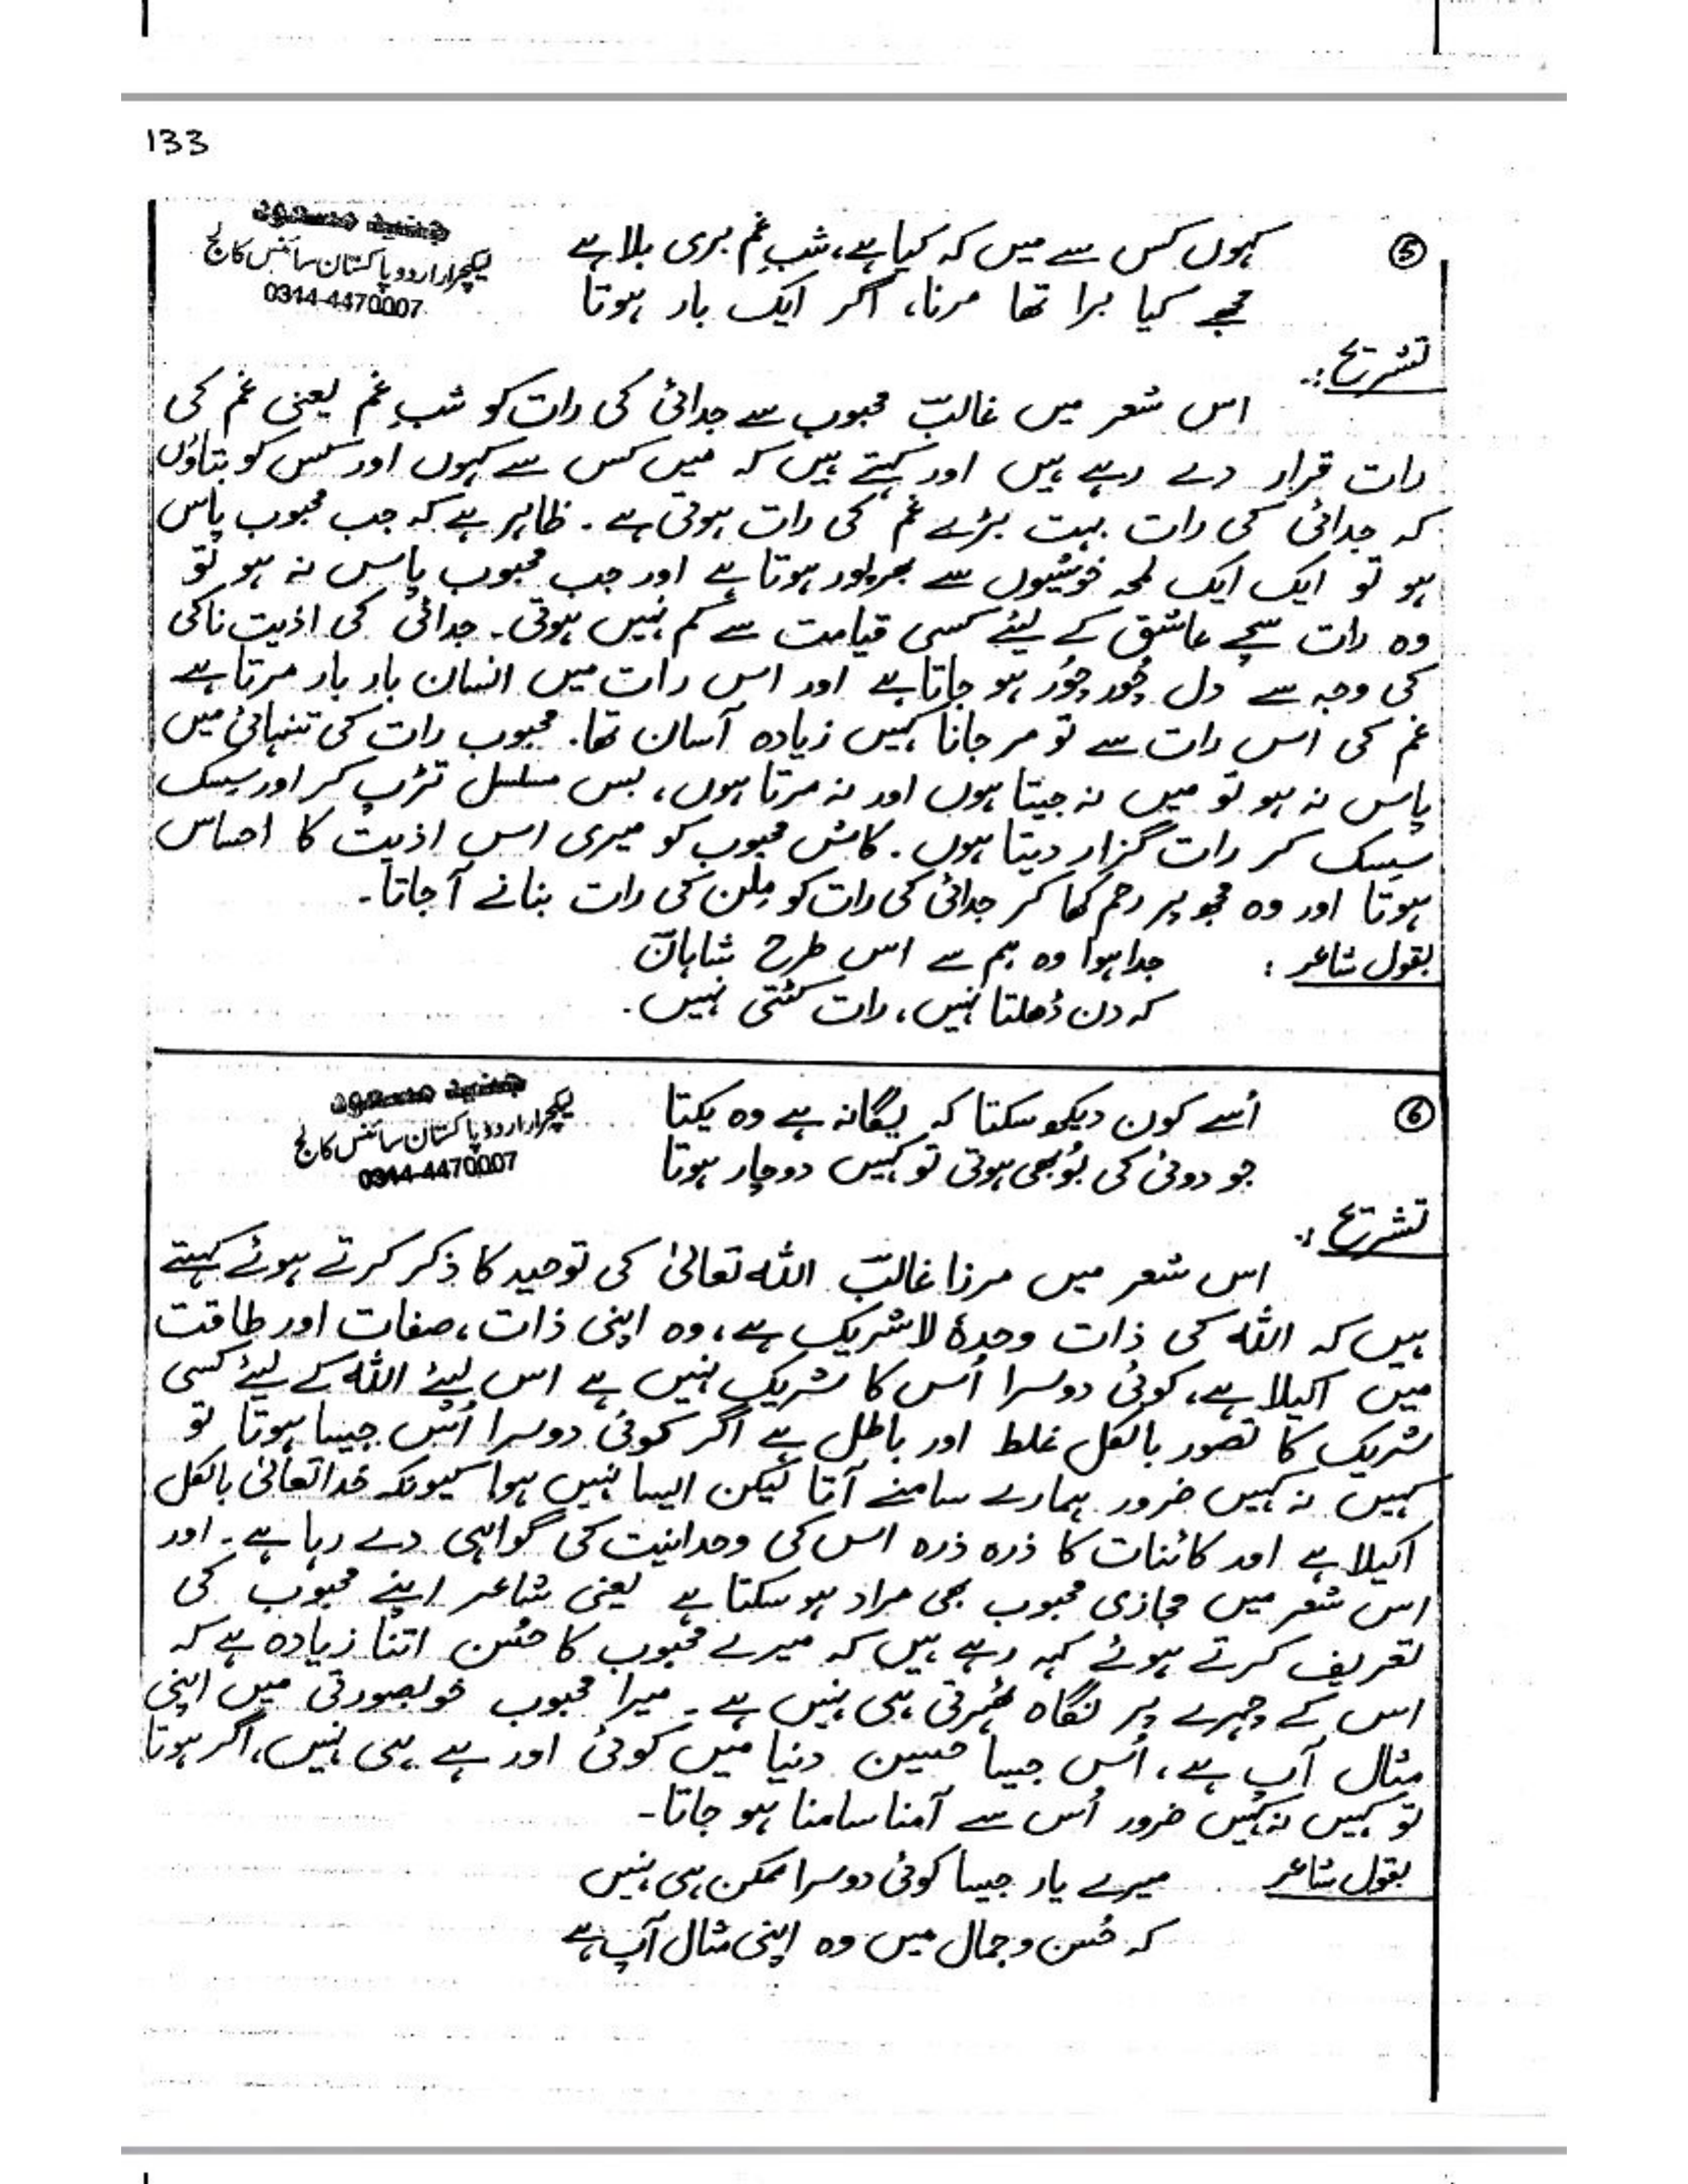 133
جنید مسعود
لیکچرار اردو پاکستان سائنس کالج
0314-4470007
⑤ کہوں کس سے میں کہ کیا ہے، شبِ غم بری بلا ہے
مجھے کیا برا تھا مرنا، اگر ایک بار ہوتا
تشریح:۔
اس شعر میں غالبؔ محبوب سے جدائی کی رات کو شبِ غم یعنی غم کی
رات قرار دے رہے ہیں اور کہتے ہیں کہ میں کس سے کہوں اور کس کو بتاؤں
کہ جدائی کی رات بہت بڑے غم کی رات ہوتی ہے۔ ظاہر ہے کہ جب محبوب پاس
ہو تو ایک ایک لمحہ خوشیوں سے بھرپور ہوتا ہے اور جب محبوب پاس نہ ہو تو
وہ رات سچے عاشق کے لیئے کسی قیامت سے کم نہیں ہوتی۔ جدائی کی اذیت ناکی
کی وجہ سے دل چُور چُور ہو جاتا ہے اور اس رات میں انسان بار بار مرتا ہے
غم کی اس رات سے تو مر جانا کہیں زیادہ آسان تھا۔ محبوب رات کی تنہائی میں
پاس نہ ہو تو میں نہ جیتا ہوں اور نہ مرتا ہوں، بس مسلسل تڑپ کر اور سسک
سسک کر رات گزار دیتا ہوں۔ کاش محبوب کو میری اس اذیت کا احساس
ہوتا اور وہ مجھ پر رحم کھا کر جدائی کی رات کو مِلن کی رات بنانے آ جاتا۔
بقول شاعر : جدا ہوا وہ ہم سے اس طرح شاہانؔ
کہ دن ڈھلتا نہیں، رات کٹتی نہیں۔
جنید مسعود
لیکچرار اردو پاکستان سائنس کالج
0314-4470007
⑥ اُسے کون دیکھ سکتا کہ یگانہ ہے وہ یکتا
جو دوئی کی بُو بھی ہوتی تو کہیں دوچار ہوتا
تشریح:۔
اس شعر میں مرزا غالبؔ اللہ تعالیٰ کی توحید کا ذکر کرتے ہوئے کہتے
ہیں کہ اللہ کی ذات وحدہٗ لا شریک ہے، وہ اپنی ذات، صفات اور طاقت
میں اکیلا ہے، کوئی دوسرا اُس کا شریک نہیں ہے اس لیئے اللہ کے لیئے کسی
شریک کا تصور بالکل غلط اور باطل ہے اگر کوئی دوسرا اُس جیسا ہوتا تو
کہیں نہ کہیں ضرور ہمارے سامنے آتا لیکن ایسا نہیں ہوا کیونکہ خدا تعالیٰ بالکل
اکیلا ہے اور کائنات کا ذرہ ذرہ اس کی وحدانیت کی گواہی دے رہا ہے۔ اور
اس شعر میں مجازی محبوب بھی مراد ہو سکتا ہے یعنی شاعر اپنے محبوب کی
تعریف کرتے ہوئے کہہ رہے ہیں کہ میرے محبوب کا حُسن اتنا زیادہ ہے کہ
اس کے چہرے پر نگاہ ٹھہرتی ہی نہیں ہے۔ میرا محبوب خوبصورتی میں اپنی
مثال آپ ہے، اُس جیسا حسین دنیا میں کوئی اور ہے ہی نہیں، اگر ہوتا
تو کہیں نہ کہیں ضرور اُس سے آمنا سامنا ہو جاتا۔
بقول شاعر میرے یار جیسا کوئی دوسرا ممکن ہی نہیں
کہ حُسن و جمال میں وہ اپنی مثال آپ ہے